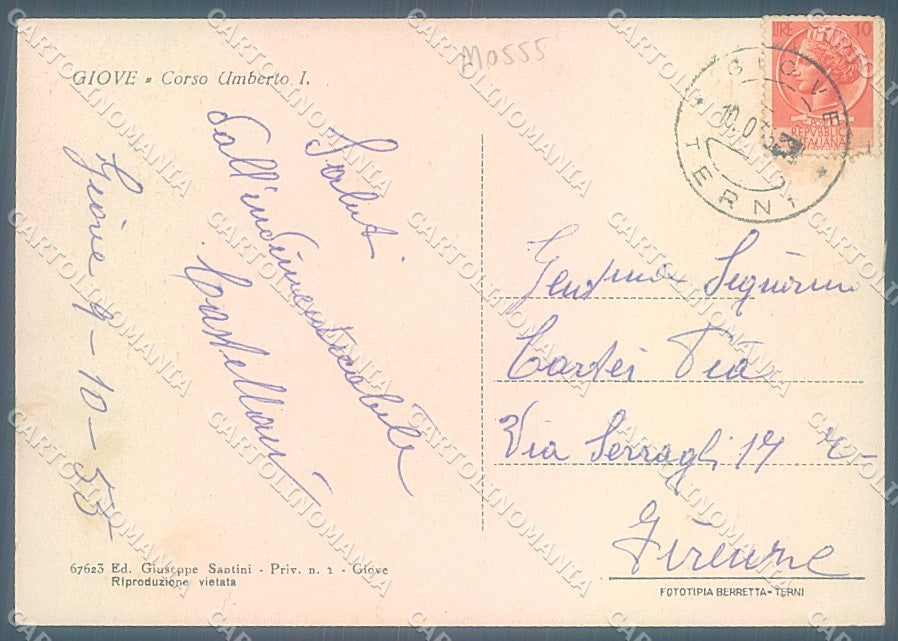 M0555
GIOVE - Corso Umberto I.
LIRE 10
POSTE
REPVBBLICA
ITALIANA
GIOVE
TERNI
Saluti
dall'indimenticabile
Castellani
Giove 9-10-55
Signorina
Via
Via Serragli 17
Firenze
67623 Ed. Giuseppe Santini - Priv. n. 1 - Giove
Riproduzione vietata
FOTOTIPIA BERRETTA - TERNI
CARTOLINOMANIA